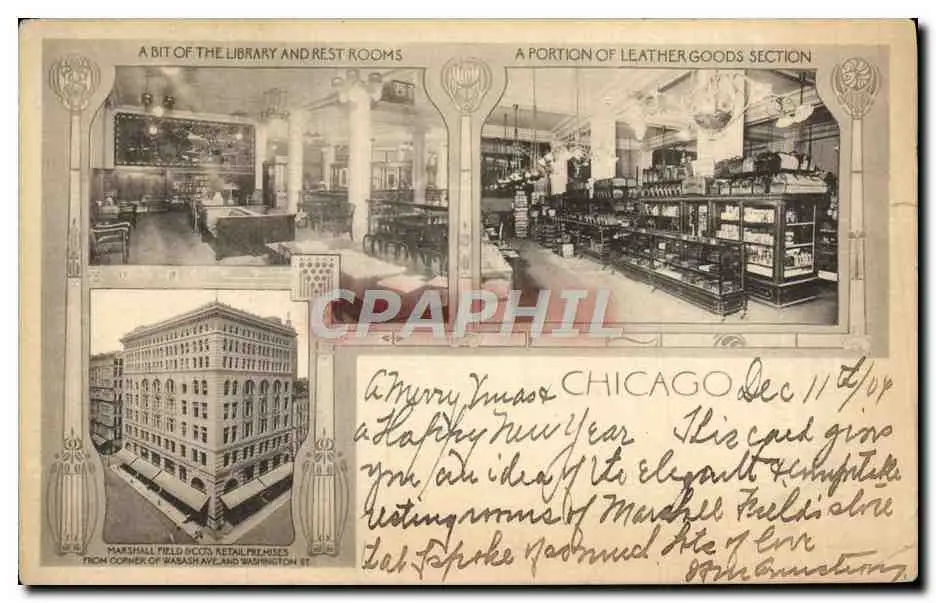 A BIT OF THE LIBRARY AND REST ROOMS
A PORTION OF LEATHER GOODS SECTION
CPAPHIL
MARSHALL FIELD & CO'S RETAIL PREMISES
FROM CORNER OF WABASH AVE. AND WASHINGTON ST.
CHICAGO Dec 11th/04
A Merry Xmas &
a Happy New Year This card gives
you an idea of the elegant &
resting rooms of Marshall Field's store
that I spoke of so much lots of love
Armstrong